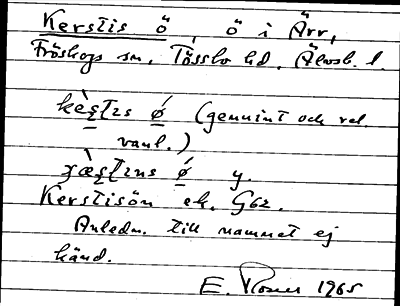 Kerstis ö, ö i Ärr,
Fröskogs sn, Tössbo hd, Älvsb. l.
kæ̀s̠tɪs ǿ̠ (genuint och rel.
vanl.)
ɣæ̀s̠tɪns ǿ̠ y.
Kerstisön ek. G62.
Anledn. till namnet ej
känd.
E. 1965